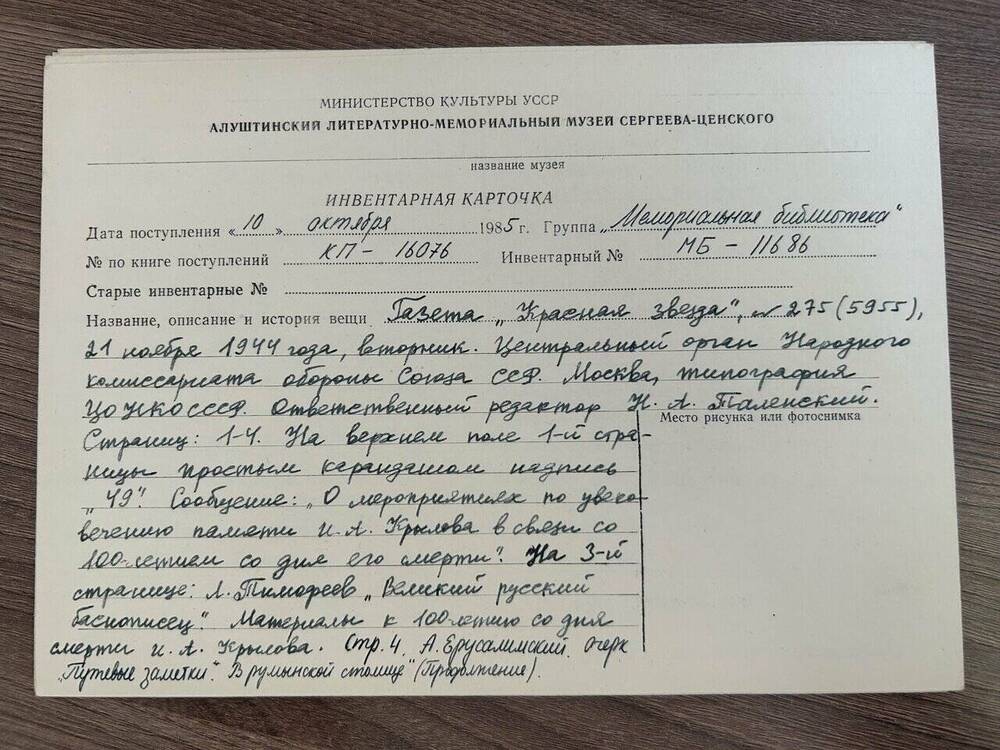 МИНИСТЕРСТВО КУЛЬТУРЫ УССР
АЛУШТИНСКИЙ ЛИТЕРАТУРНО-МЕМОРИАЛЬНЫЙ МУЗЕЙ СЕРГЕЕВА-ЦЕНСКОГО
название музея
ИНВЕНТАРНАЯ КАРТОЧКА
Дата поступления «10» октября 1985 г. Группа „Мемориальная библиотека"
№ по книге поступлений КП - 16076 Инвентарный № МБ - 11686
Старые инвентарные №
Название, описание и история вещи Газета „Красная звезда", № 275 (5955),
21 ноября 1944 года, вторник. Центральный орган Народного
комиссариата обороны Союза ССР. Москва, типография
ЦО НКО СССР. Ответственный редактор Н. А. Таленский.
Место рисунка или фотоснимка
Страниц: 1-4. На верхнем поле 1-й стра-
ницы простым карандашом надпись
„49". Сообщение: „О мероприятиях по увеко-
вечению памяти И. А. Крылова в связи со
100-летием со дня его смерти". На 3-й
странице: Л. Тимофеев „Великий русский
баснописец". Материалы к 100-летию со дня
смерти И. А. Крылова. Стр. 4. А. Ерусалимский. Очерк
„Путевые заметки". „В румынской столице" (Продолжение).